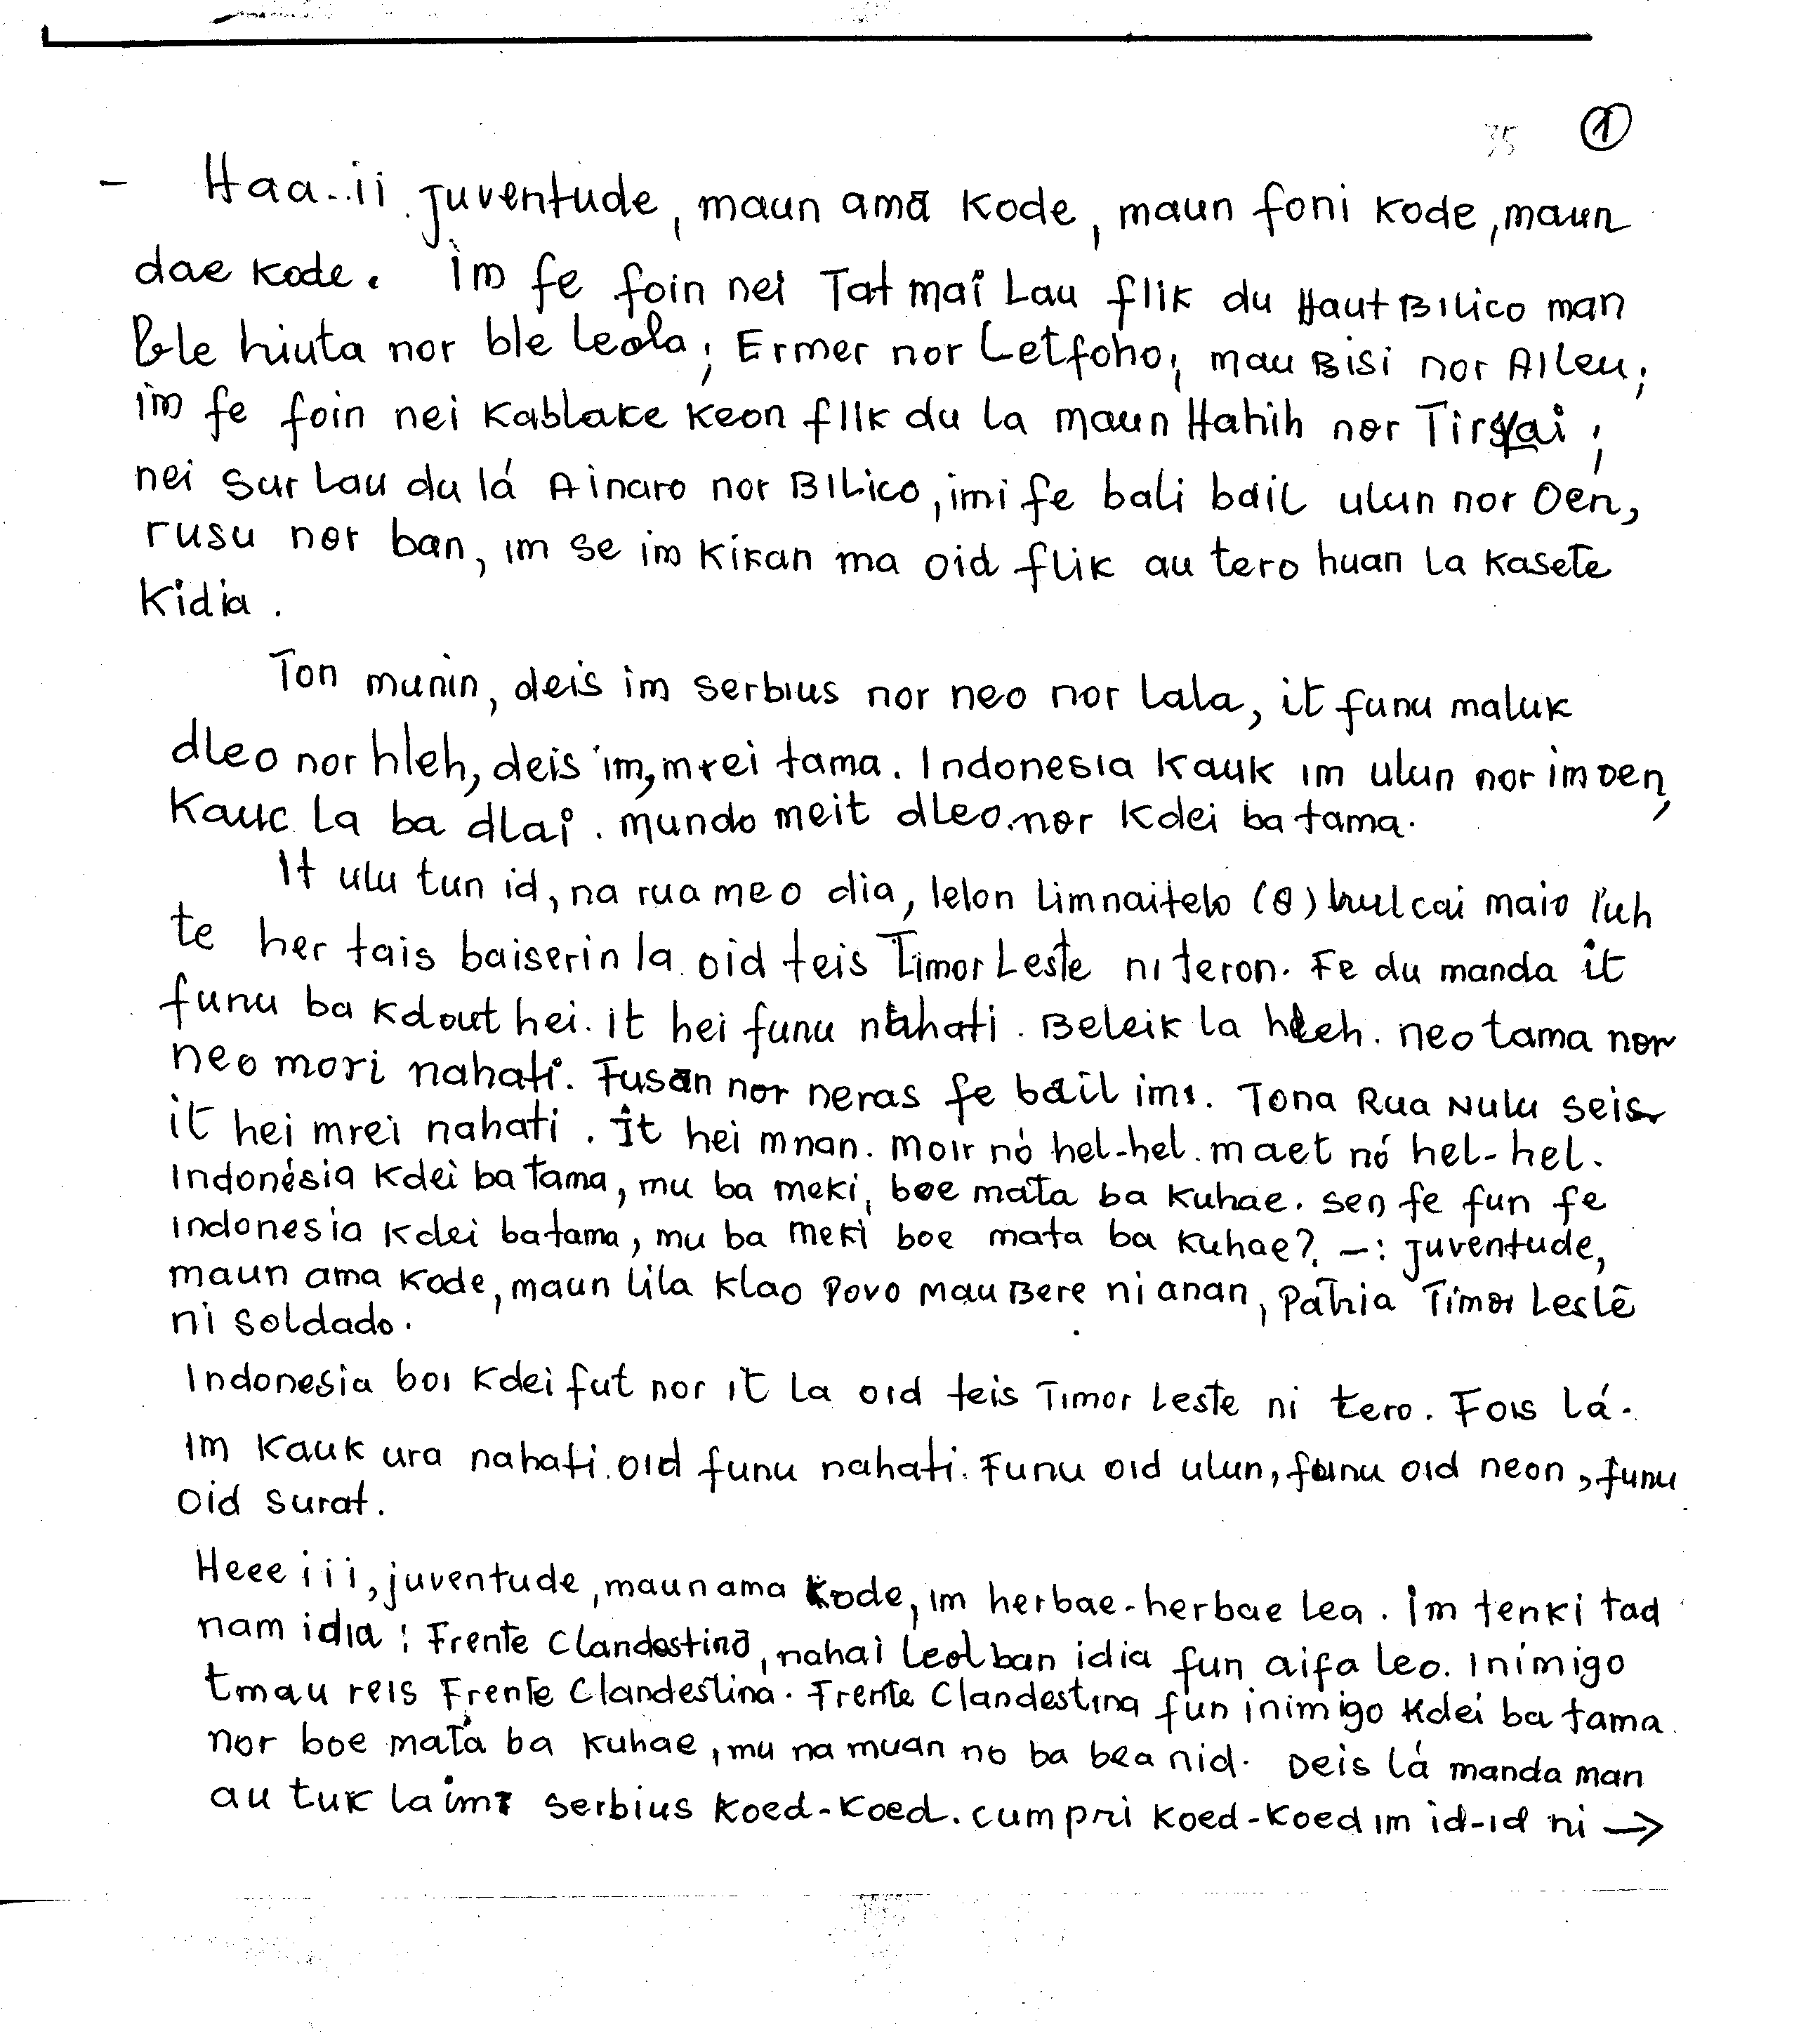 35 1
- Haa..ii juventude, maun amã Kode, maun foni Kode, maun
dae kode. Im fe foin nei Tat mai Lau flik du Haut Bilico man
Ble hiuta nor ble leola; Ermer nor Letfoho; mau Bisi nor Aileu;
im fe foin nei Kablake Keon flik du la maun Hahih nor
nei sur Lau du lá Ainaro nor Bilico, imi fe bali bail ulun nor Oen,
rusu nor ban, im se im Kikan ma oid flik au tero huan la Kasete
Kidia.
Ton munin, deis im serbius nor neo nor lala, it funu maluk
dleo nor hleh, deis im, mrei tama. Indonesia Kauk im ulun nor im oen,
Kauk la ba dlai. mundo meit dleo nor Kdei ba tama.
It ulu tun id, na rua meo dia, lelon limnaitelo (8) maio l'uh
te her tais baiserin la oid teis Timor Leste ni teron. Fe du manda it
funu ba Kdout hei. it hei funu nahati. Beleik la hleh. neo tama nor
neo mori nahati. Fusan nor neras fe bail imi. Tona Rua Nulu seis
it hei mrei nahati. It hei mnan. Moir nó hel-hel. maet nó hel-hel.
Indonésia Kdei ba tama, mu ba meki, boe mata ba Kuhae. sen fe fun fe
indonesia Kdei batama, mu ba meki boe mata ba Kuhae? -: juventude,
maun ama Kode, maun lila Klao Povo Mau Bere ni anan, Pátria Timor Leste
ni soldado.
Indonesia boi Kdei fut nor it la oid teis Timor Leste ni tero. Fois lá.
Im Kauk ura nahati. oid funu nahati. Funu oid ulun, funu oid neon, funu
oid surat.
Heee iii, juventude, maun ama Kode, im herbae-herbae lea. Im tenki tad
nam idia: Frente Clandestina, nahai Leolban idia fun aifa leo. Inimigo
tmau reis Frente Clandestina. Frente Clandestina fun inimigo Kdei ba tama
nor boe mata ba kuhae, mu na muan no ba bea nid. Deis lá manda man
au tuk la imi serbius Koed-Koed. cumpri Koed-Koed im id-id ni →